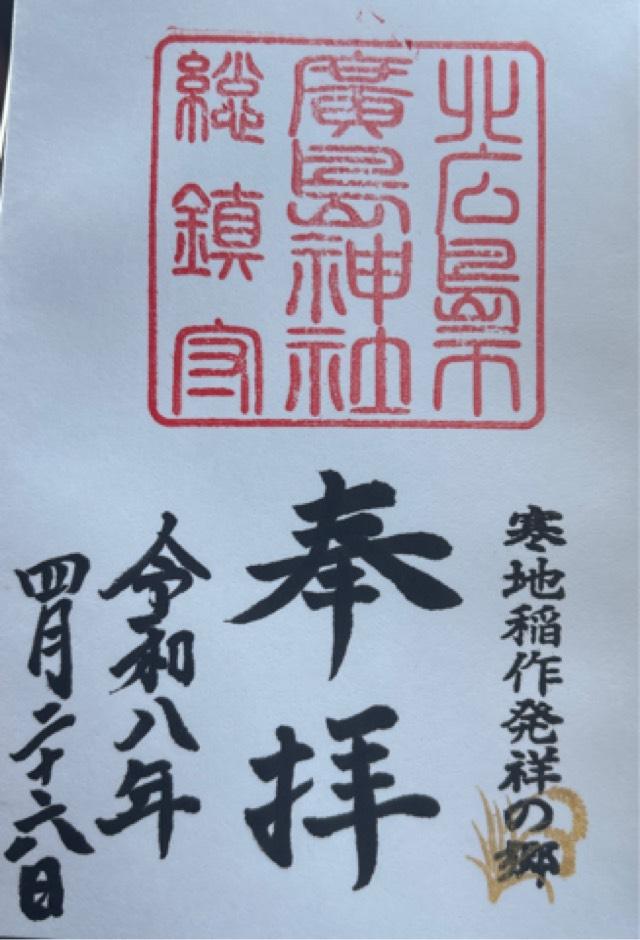 北広島市
廣島神社
総鎮守
寒地稲作発祥の郷
奉拝
令和八年
四月二十六日